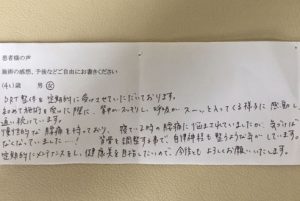 患者様の声
施術の感想、予後などご自由にお書きください
(41)歳 男 女
DRT整体を定期的に受けさせていただいております。
初めて施術を受けた際に、背中がスッキリし、呼吸がスーッと入ってくる様子に感動し
通い続けています。
慢性的な腰痛を持っており、寝ている時の腰痛に悩まされていましたが、気づけば
なくなっていました…！ 背骨を調整する事で、自律神経も整うような気がしています。
定期的にメンテナンスをし、健康美を目指したいので、今後ともよろしくお願いいたします。